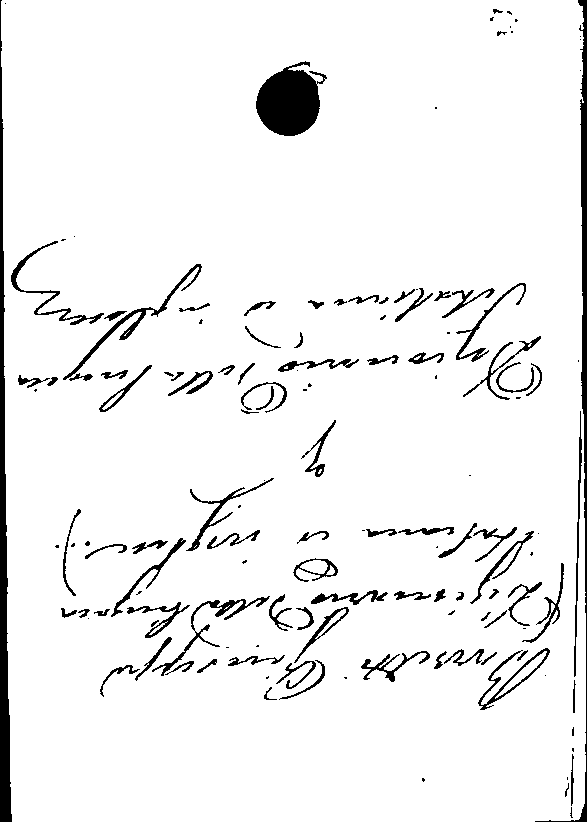 Baretti Giuseppe
(Dizionario della lingua
italiana ed inglese..)
9
Dizionario della lingua
Italiana ed inglese